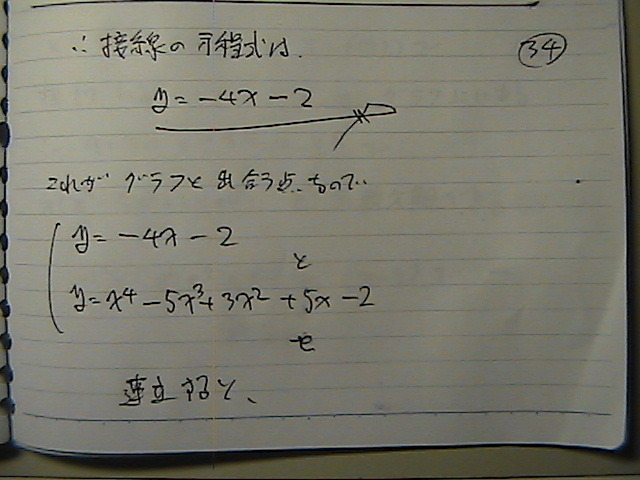 ∴ 接線の方程式は、
34
y = -4x - 2
これが グラフと 出合う点なので
y = -4x - 2
と
y = x⁴ - 5x³ + 3x² + 5x - 2
を
連立すると、